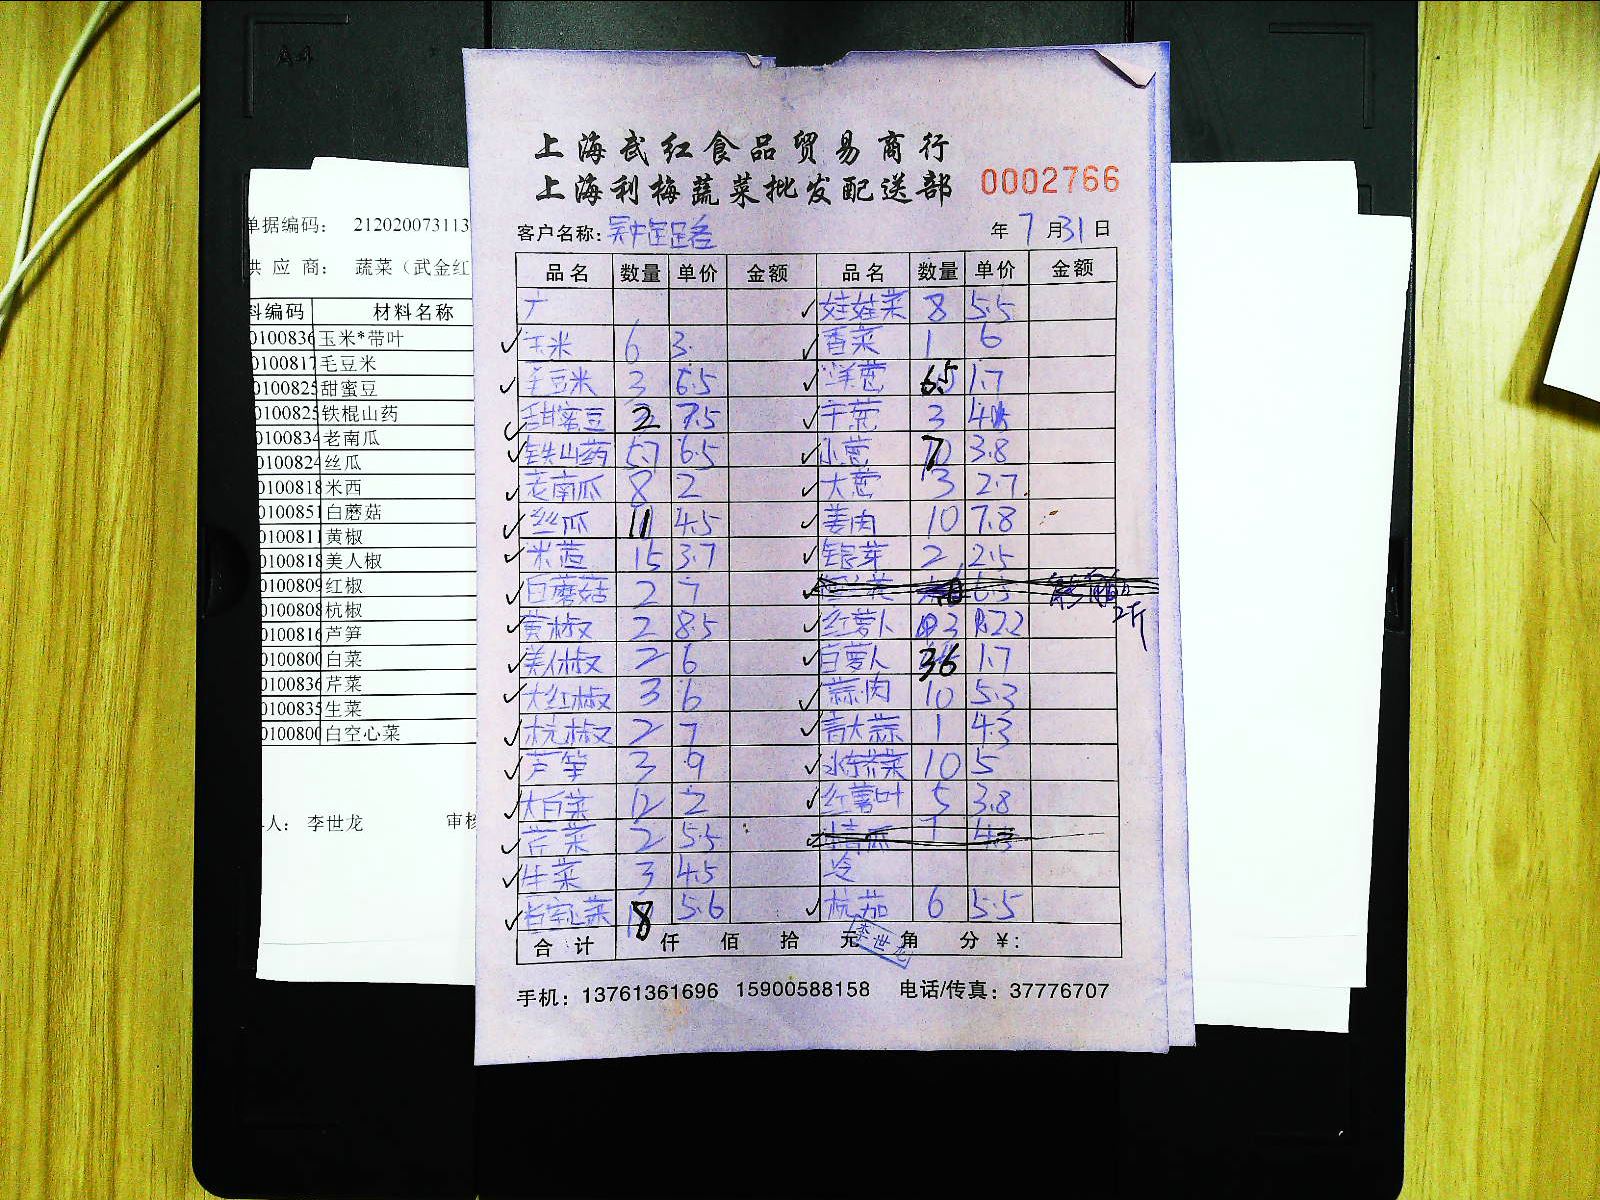 上海武红食品贸易商行
上海利梅蔬菜批发配送部
0002766
客户名称:
年 7 月 31 日
品名 数量 单价 金额 品名 数量 单价 金额
娃娃菜 8 5.5
玉米 6 3 香菜 1 6
毛豆米 3 6.5 洋葱 6.5 1.7
甜蜜豆 2 7.5 干葱 3
铁山药 5.7 6.5 小葱 3.8
老南瓜 8 2 大葱 3 2.7
丝瓜 11 4.5 姜肉 10 7.8
米苋 15 3.7 银芽 2 2.5
白蘑菇 2 7
2斤
黄椒 2 8.5 红萝卜 3 2.2
美人椒 2 6 白萝卜 36 1.7
大红椒 3 6 蒜肉 10 5.3
杭椒 2 7 青大蒜 1 4.3
芦笋 3 9 水东芥菜 10 5
大白菜 12 2 红薯叶 5 3.8
芹菜 2 5.5
生菜 3 4.5
白空心菜 8 5.6 杭茄 6 5.5
合计 仟 佰 拾 元 角 分 ¥:
李世龙
手机: 13761361696 15900588158 电话/传真: 37776707
单据编码: 212020073113
供应商: 蔬菜（武金红
料编码 材料名称
0100836 玉米*带叶
0100817 毛豆米
0100825 甜蜜豆
0100825 铁棍山药
0100834 老南瓜
0100824 丝瓜
0100818 米西
0100851 白蘑菇
0100811 黄椒
0100818 美人椒
0100809 红椒
0100808 杭椒
0100816 芦笋
0100800 白菜
0100836 芹菜
0100835 生菜
0100800 白空心菜
人: 李世龙 审核